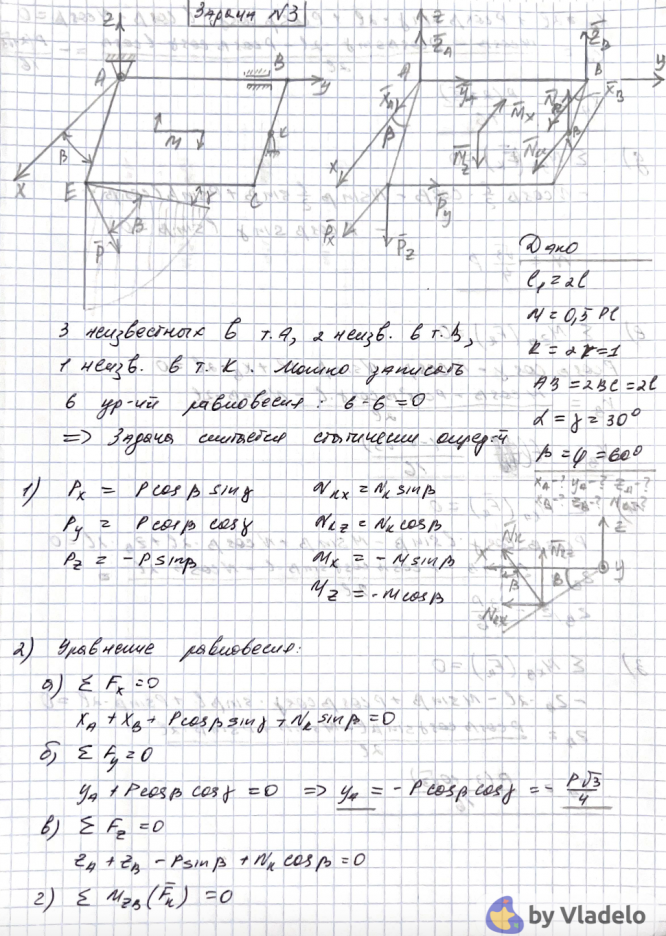 Задача №3
z
A
B
y
x
M
K
β
E
C
γ
β
P̄
z
Z̄A
Z̄B
A
B
y
X̄A
ȲA
M̄x
X̄B
β
M̄z
N̄kx
x
P̄y
P̄x
P̄z
Дано
l₁ = 2l
M = 0,5 Pl
R = 2r = 1
AB = 2BC = 2l
α = γ = 30°
β = φ = 60°
XA-? YA-? ZA-?
XB-? ZB-?
3 неизвестных в т.A, 2 неизв. в т.B,
1 неизв. в т. K. Можно записать
6 ур-ий равновесия: 6-6=0
=> Задача считается статически опред-й
1) Px = P cosβ sinγ Nkx = Nk sinβ
Py = P cosβ cosγ Nkz = Nk cosβ
Pz = - P sinβ Mx = - M sinβ
Mz = - M cosβ
z
N̄k
N̄kz
x
β
B
y
Nkx
2) Уравнение равновесия:
а) Σ Fx = 0
XA + XB + P cosβ sinγ + Nk sinβ = 0
б) Σ Fy = 0
YA + P cosβ cosγ = 0 => YA = - P cosβ cosγ = - P√3/4
в) Σ Fz = 0
ZA + ZB - P sinβ + Nk cosβ = 0
г) Σ MzB (F̄k) = 0
by Vladelo